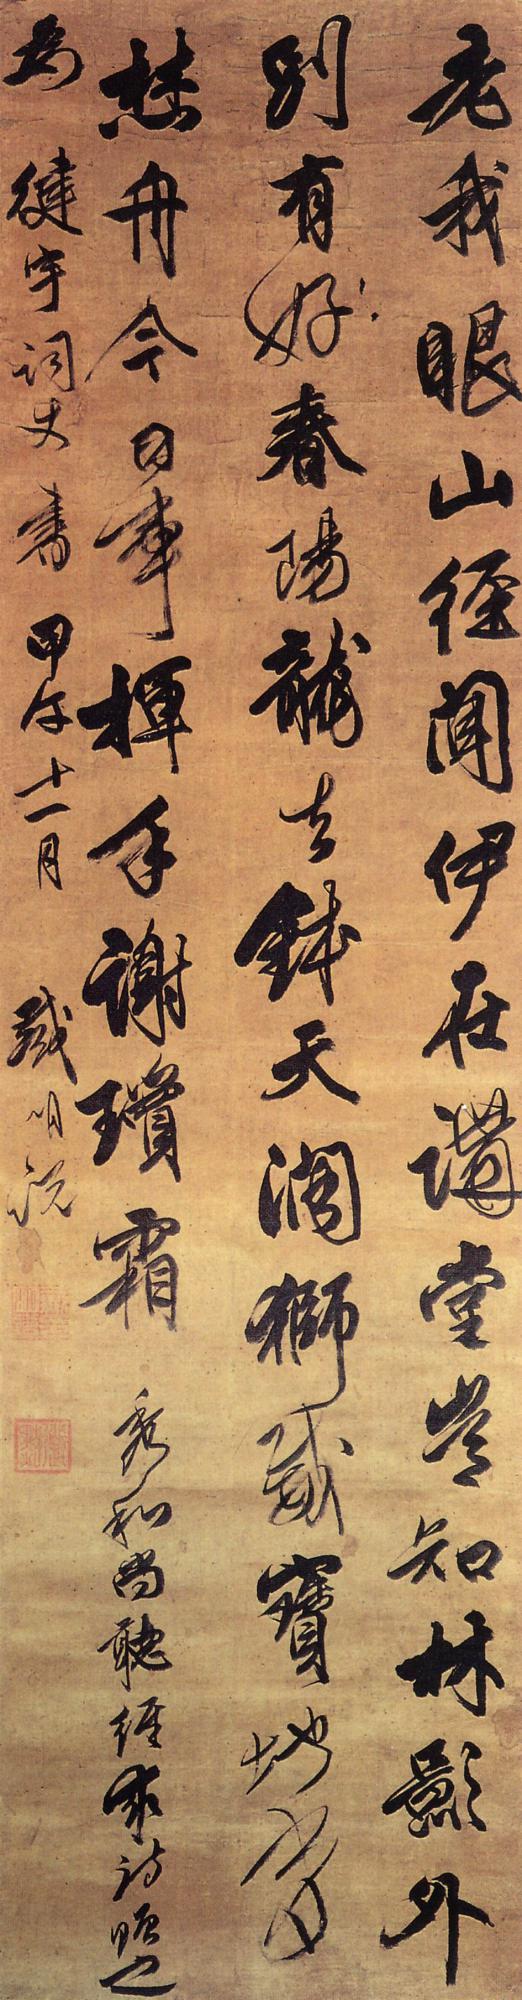 老我眼山徑聞伊在講堂豈知林影外
別有好春陽龍去鉢天濶獅威寶地香
慈舟今日事揮手謝瓊霜 秀和尚聽經求詩贈之
為健宇詞丈書甲午十一月 戴明説